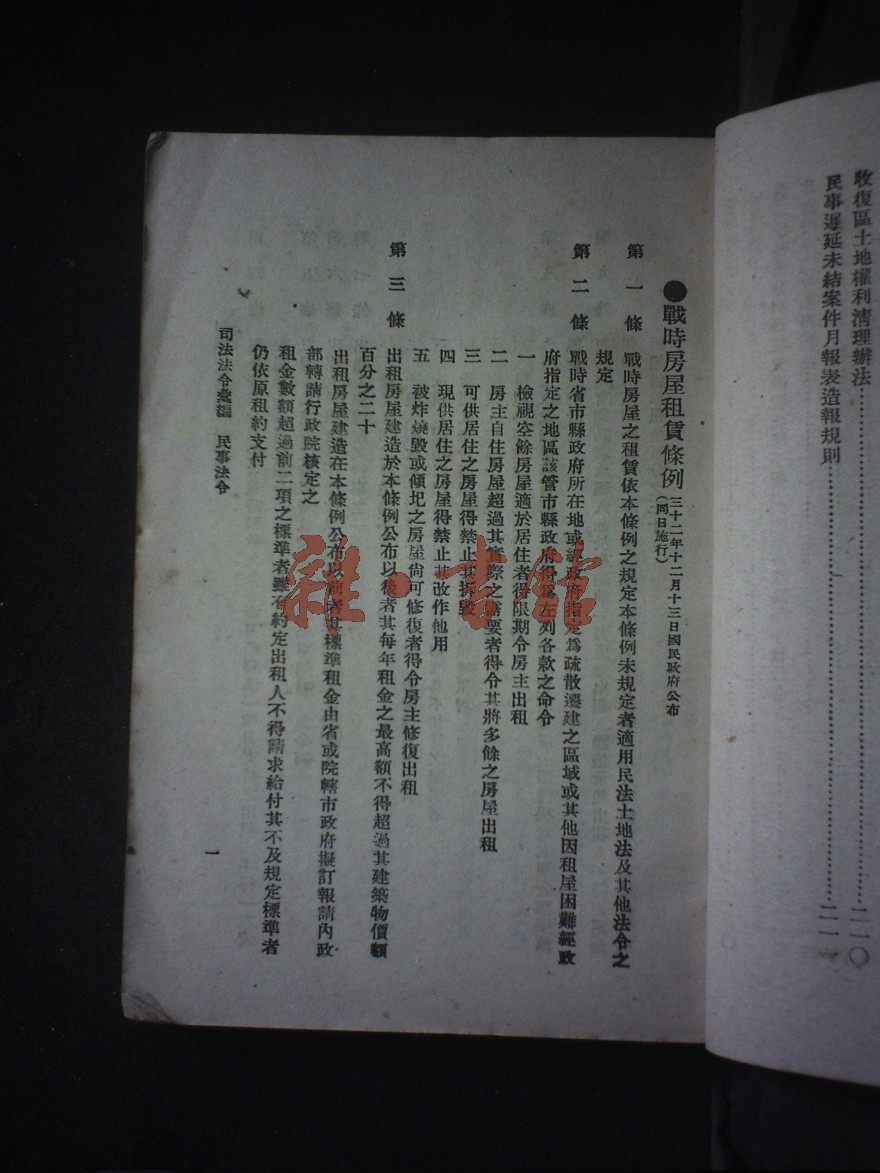 收復區土地權利清理辦法⋯⋯⋯⋯⋯⋯⋯⋯二一〇
民事遲延未結案件月報表造報規則⋯⋯⋯⋯⋯⋯⋯⋯二一一
●戰時房屋租賃條例(三十二年十二月十三日國民政府公布 同日施行)
第一條 戰時房屋之租賃依本條例之規定本條例未規定者適用民法土地法及其他法令之
規定
第二條 戰時省市縣政府所在地或經政府指定爲疏散遷建之區域或其他因租屋困難經政
府指定之地區該管市縣政府得爲左列各款之命令
一 檢視空餘房屋適於居住者得限期令房主出租
二 房主自住房屋超過其實際之需要者得令其將多餘之房屋出租
三 可供居住之房屋得禁止其拆毀
四 現供居住之房屋得禁止其改作他用
五 被炸燒毀或傾圮之房屋尙可修復者得令房主修復出租
第三條 出租房屋建造於本條例公布以後者其每年租金之最高額不得超過其建築物價額
百分之二十
出租房屋建造在本條例公布以前者其標準租金由省或院轄市政府擬訂報請內政
部轉請行政院核定之
租金數額超過前二項之標準者雖有約定出租人不得請求給付其不及規定標準者
仍依原租約支付
司法法令彙編 民事法令
一
雜·書館